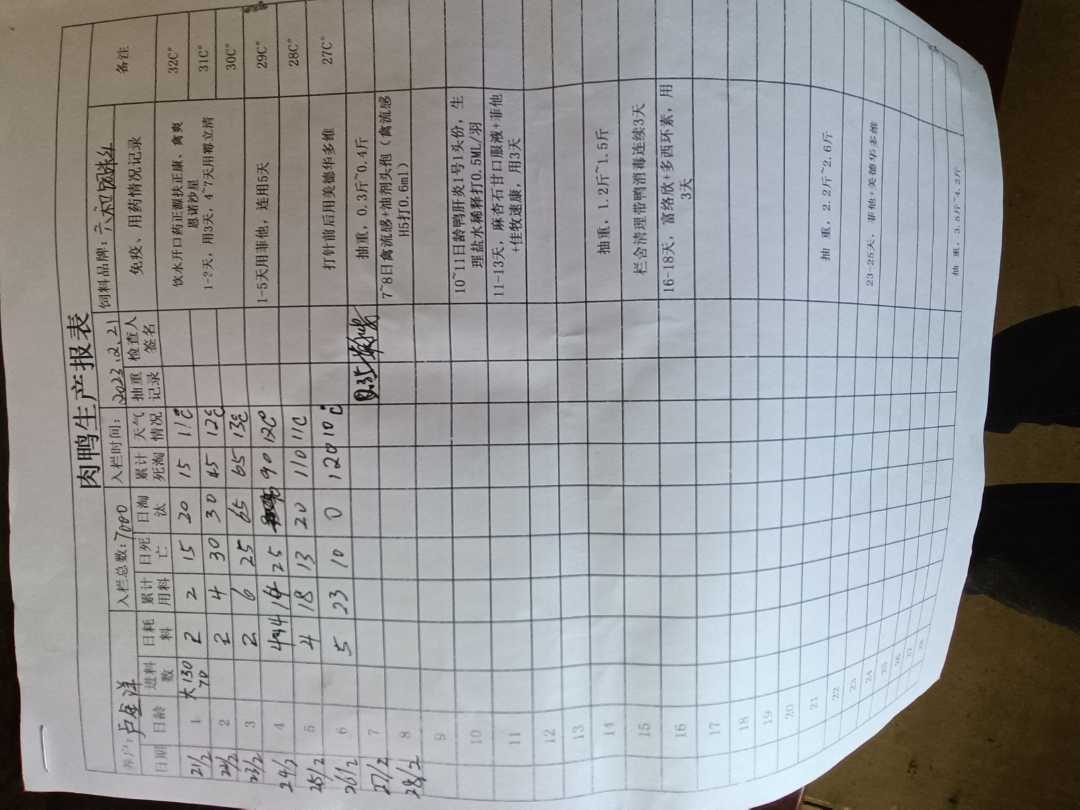 肉鸭生产报表
养户：卢金洋 入栏总数：7000 入栏时间：2023.2.21 饲料品牌：六和
日期 日龄 进料数 日耗料 累计用料 日死亡 日淘汰 累计死淘 天气情况 抽重记录 检查人签名 免疫、用药情况记录 备注
21/2 1 大130 70 2 2 15 20 15 11℃ 饮水开口药正源扶正康、禽爽 恩诺沙星 32C°
22/2 2 2 4 30 30 45 12℃ 1-2天，用3天，4~7天用霉立清 31C°
23/2 3 2 6 25 65 65 13℃ 30C°
24/2 4 4 14 25 90 12℃ 1-5天用菲他，连用5天 29C°
25/2 5 4 18 13 20 110 11C 28C°
26/2 6 5 23 10 0 120 10℃ 打针前后用美德华多维 27C°
27/2 7 0.35 抽重，0.3斤~0.4斤
28/2 8 7~8日禽流感+油剂头孢（禽流感
H5打0.6ml）
9
10 10~11日龄鸭肝炎1号1头份，生
理盐水稀释打0.5ML/羽
11 11-13天，麻杏石甘口服液+菲他
+佳牧速康，用3天
12
13
14 抽重，1.2斤~1.5斤
15 栏舍清理带鸭消毒连续3天
16 16-18天，富络欣+多西环素，用
3天
17
18
19
20
21 抽 重，2.2斤~2.6斤
22
23 23-25天，菲他+美德华多维
24
25
26
27
28 抽 重，3.8斤~4.2斤